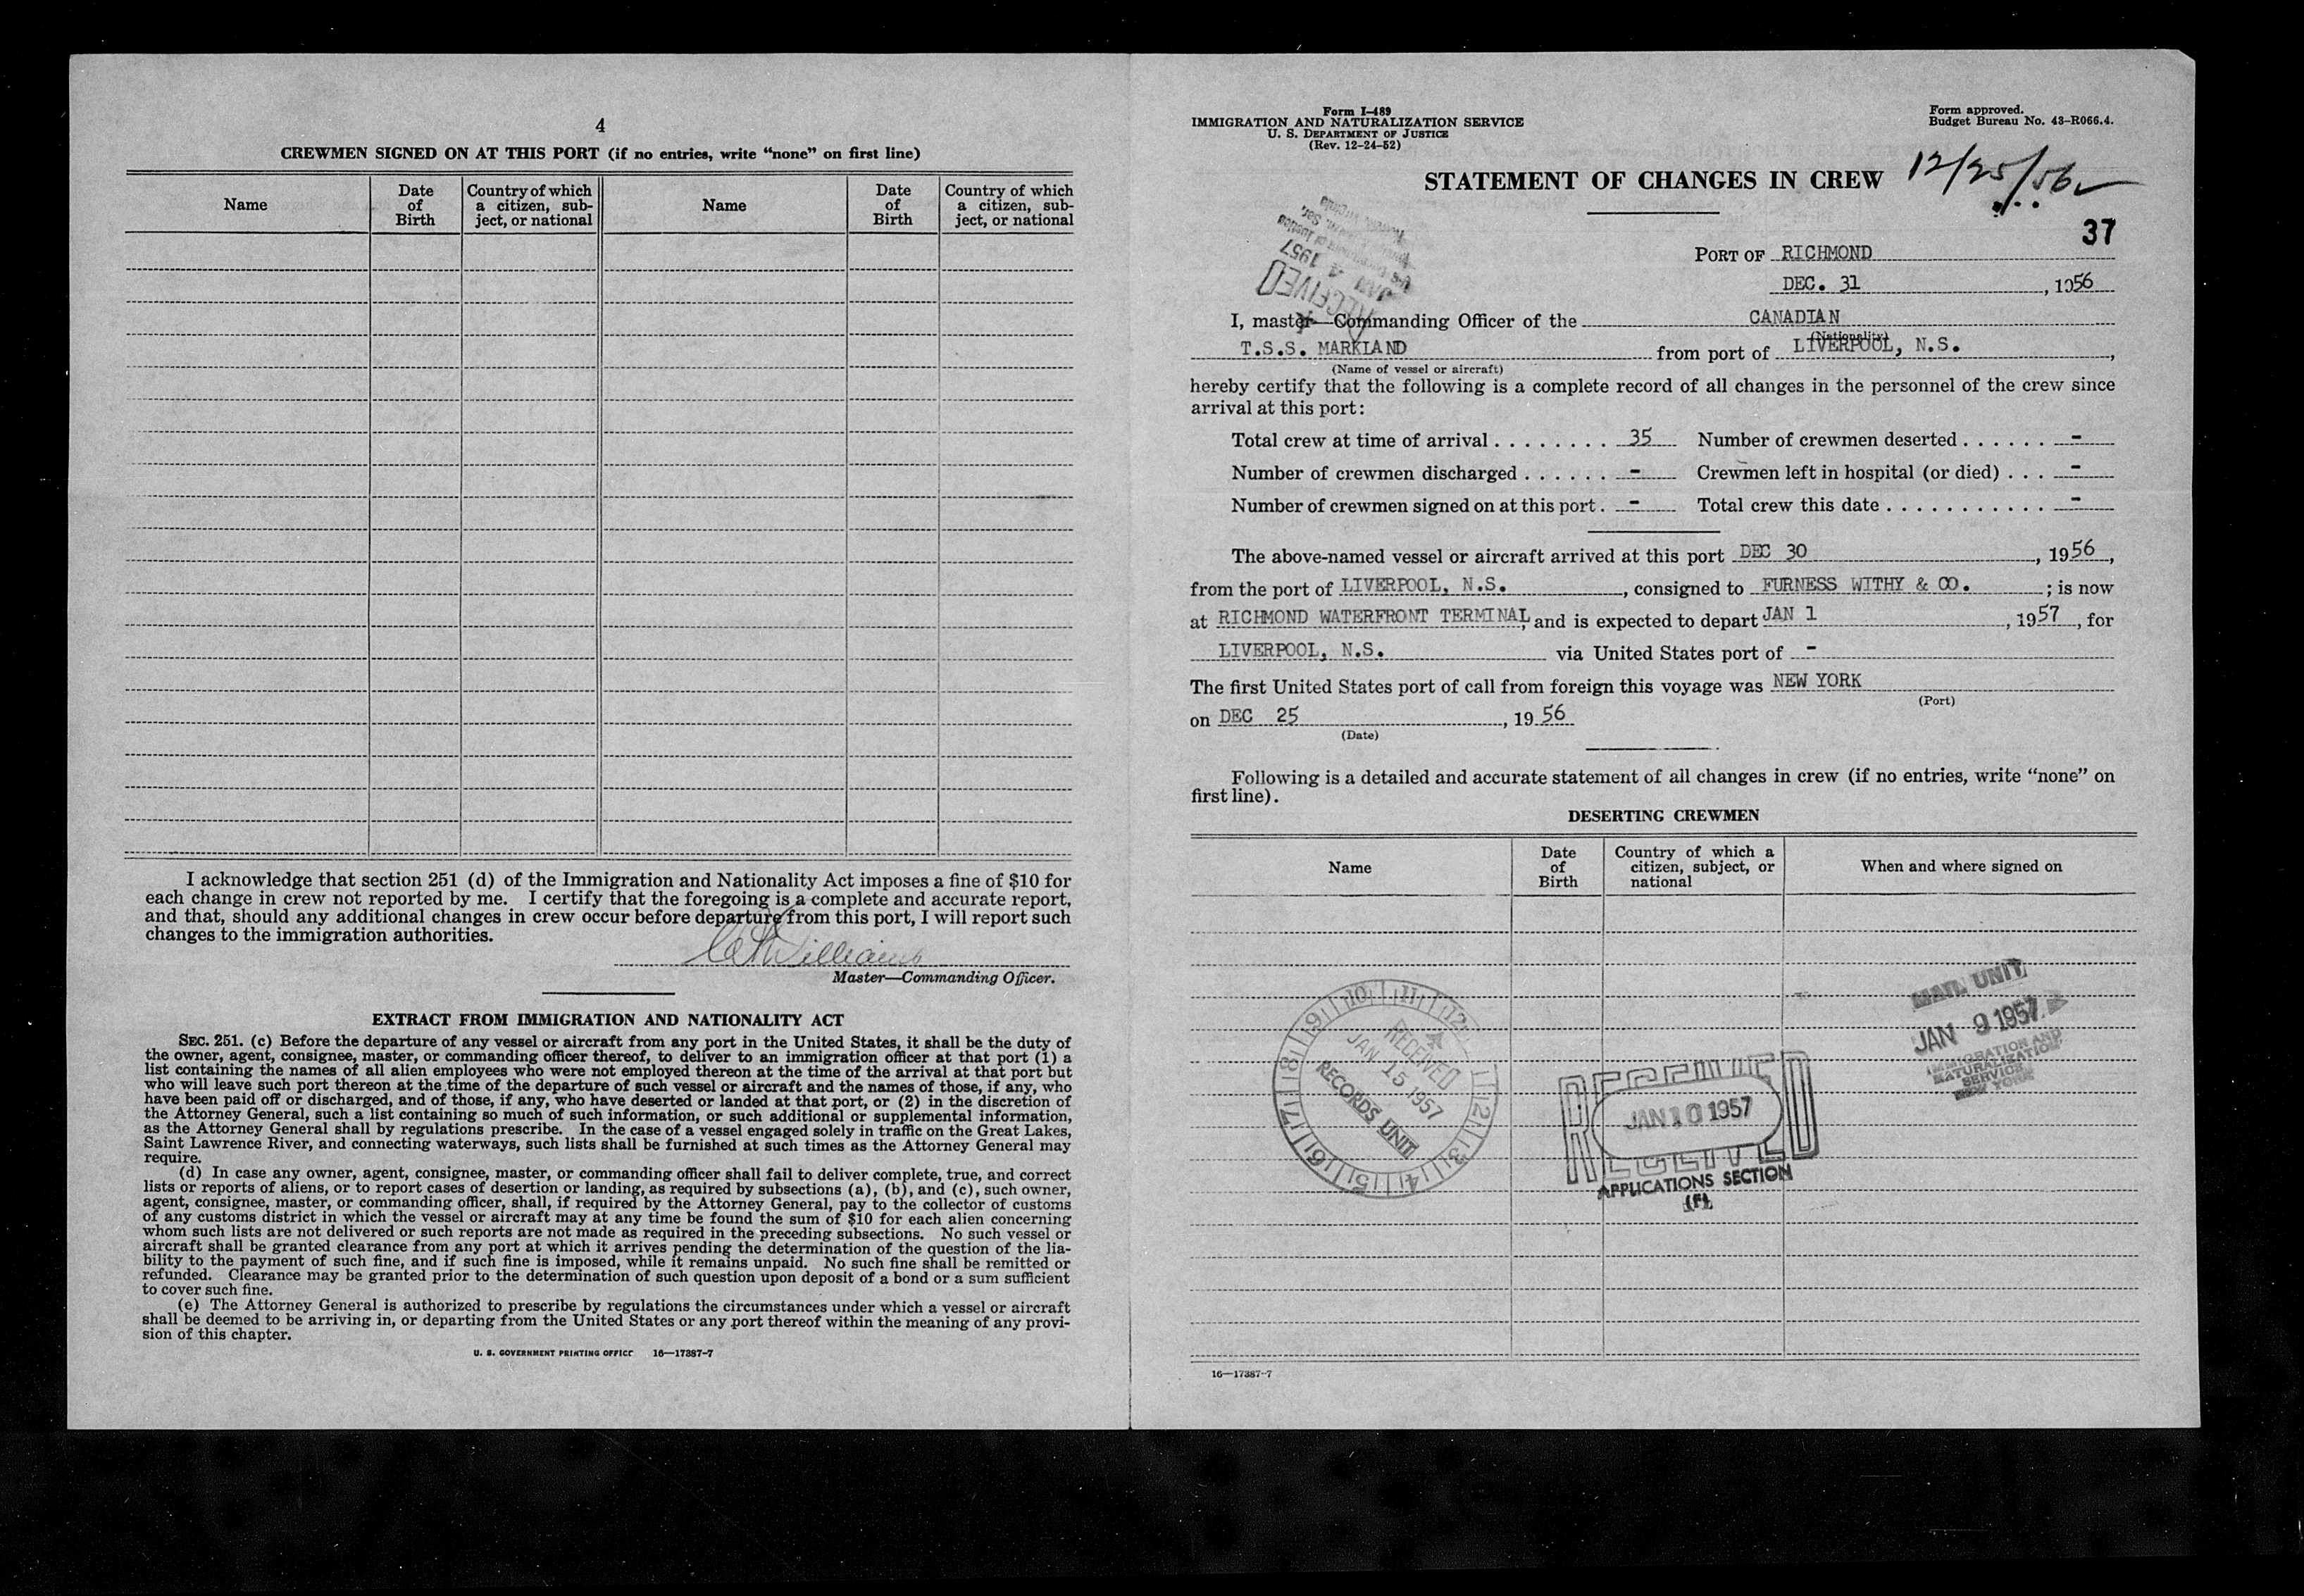 4
CREWMEN SIGNED ON AT THIS PORT (if no entries, write "none" on first line)
Name
Date of Birth
Country of which a citizen, subject, or national
Name
Date of Birth
Country of which a citizen, subject, or national
I acknowledge that section 251 (d) of the Immigration and Nationality Act imposes a fine of $10 for
each change in crew not reported by me. I certify that the foregoing is a complete and accurate report,
and that, should any additional changes in crew occur before departure from this port, I will report such
changes to the immigration authorities.
Williams
Master—Commanding Officer.
EXTRACT FROM IMMIGRATION AND NATIONALITY ACT
SEC. 251. (c) Before the departure of any vessel or aircraft from any port in the United States, it shall be the duty of
the owner, agent, consignee, master, or commanding officer thereof, to deliver to an immigration officer at that port (1) a
list containing the names of all alien employees who were not employed thereon at the time of the arrival at that port but
who will leave such port thereon at the time of the departure of such vessel or aircraft and the names of those, if any, who
have been paid off or discharged, and of those, if any, who have deserted or landed at that port, or (2) in the discretion of
the Attorney General, such a list containing so much of such information, or such additional or supplemental information,
as the Attorney General shall by regulations prescribe. In the case of a vessel engaged solely in traffic on the Great Lakes,
Saint Lawrence River, and connecting waterways, such lists shall be furnished at such times as the Attorney General may
require.
(d) In case any owner, agent, consignee, master, or commanding officer shall fail to deliver complete, true, and correct
lists or reports of aliens, or to report cases of desertion or landing, as required by subsections (a), (b), and (c), such owner,
agent, consignee, master, or commanding officer, shall, if required by the Attorney General, pay to the collector of customs
of any customs district in which the vessel or aircraft may at any time be found the sum of $10 for each alien concerning
whom such lists are not delivered or such reports are not made as required in the preceding subsections. No such vessel or
aircraft shall be granted clearance from any port at which it arrives pending the determination of the question of the lia-
bility to the payment of such fine, and if such fine is imposed, while it remains unpaid. No such fine shall be remitted or
refunded. Clearance may be granted prior to the determination of such question upon deposit of a bond or a sum sufficient
to cover such fine.
(e) The Attorney General is authorized to prescribe by regulations the circumstances under which a vessel or aircraft
shall be deemed to be arriving in, or departing from the United States or any port thereof within the meaning of any provi-
sion of this chapter.
U. S. GOVERNMENT PRINTING OFFICE 16—17387-7
Form I-489
IMMIGRATION AND NATURALIZATION SERVICE
U. S. DEPARTMENT OF JUSTICE
(Rev. 12-24-52)
Form approved.
Budget Bureau No. 43-R066.4.
STATEMENT OF CHANGES IN CREW
12/25/56
37
RECEIVED
JAN 4 1957
PORT OF RICHMOND
DEC. 31, 1956
I, master—Commanding Officer of the CANADIAN
(Nationality)
T.S.S. MARKLAND from port of LIVERPOOL, N.S.,
(Name of vessel or aircraft)
hereby certify that the following is a complete record of all changes in the personnel of the crew since
arrival at this port:
Total crew at time of arrival . . . . . . . . 35 Number of crewmen deserted . . . . . . -
Number of crewmen discharged . . . . . . - Crewmen left in hospital (or died) . . . -
Number of crewmen signed on at this port . - Total crew this date . . . . . . . . . . . . -
The above-named vessel or aircraft arrived at this port DEC 30, 1956,
from the port of LIVERPOOL, N.S., consigned to FURNESS WITHY & CO. ; is now
at RICHMOND WATERFRONT TERMINAL, and is expected to depart JAN 1, 1957, for
LIVERPOOL, N.S. via United States port of -
The first United States port of call from foreign this voyage was NEW YORK
(Port)
on DEC 25, 1956
(Date)
Following is a detailed and accurate statement of all changes in crew (if no entries, write "none" on
first line).
DESERTING CREWMEN
Name
Date of Birth
Country of which a citizen, subject, or national
When and where signed on
RECEIVED
JAN 15 1957
RECORDS UNIT
10 11 12 1 2 3 4 5 6 7 8 9
RECEIVED
JAN 10 1957
APPLICATIONS SECTION
(F)
MAIL UNIT
JAN 9 1957
IMMIGRATION AND
NATURALIZATION
SERVICE
NEW YORK
16—17387-7